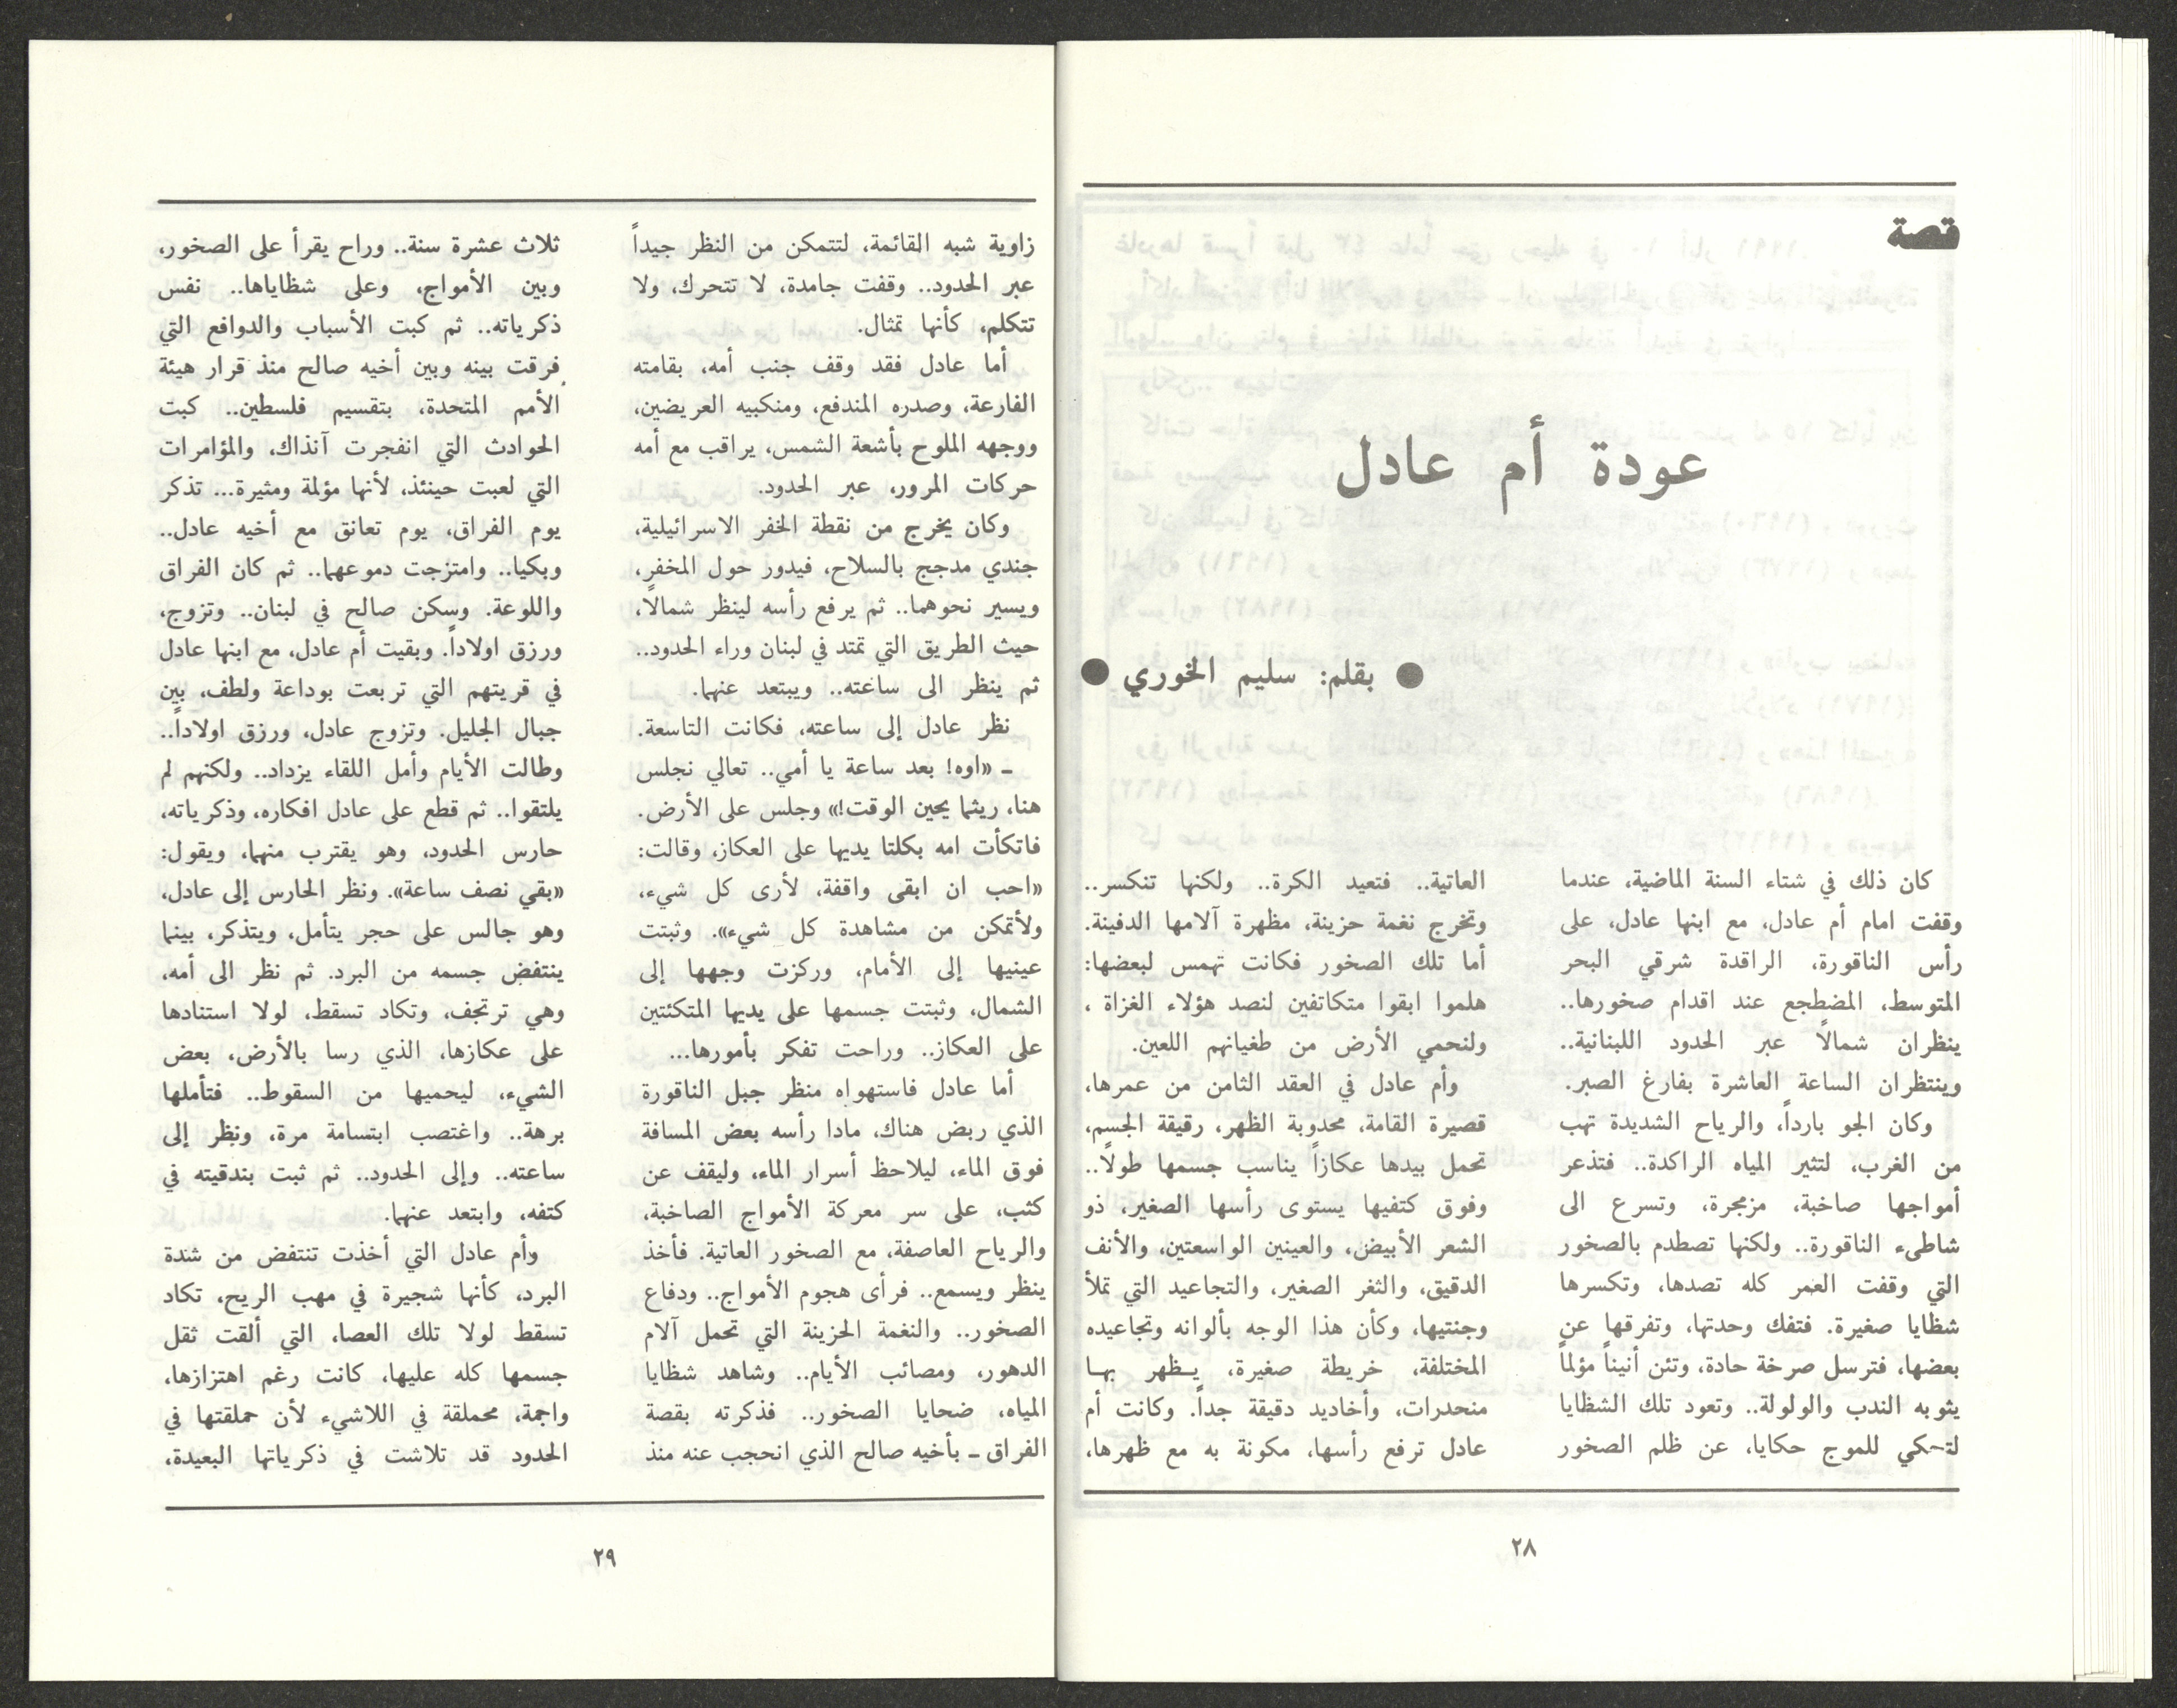 قصة
عودة أم عادل
● بقلم: سليم الخوري ●
كان ذلك في شتاء السنة الماضية، عندما
وقفت امام أم عادل، مع ابنها عادل، على
رأس الناقورة، الراقدة شرقي البحر
المتوسط، المضطجع عند اقدام صخورها..
ينظران شمالاً عبر الحدود اللبنانية..
وينتظران الساعة العاشرة بفارغ الصبر.
وكان الجو بارداً، والرياح الشديدة تهب
من الغرب، لتثير المياه الراكدة.. فتذعر
أمواجها صاخبة، مزمجرة، وتسرع الى
شاطىء الناقورة.. ولكنها تصطدم بالصخور
التي وقفت العمر كله تصدها، وتكسرها
شظايا صغيرة. فتفك وحدتها، وتفرقها عن
بعضها، فترسل صرخة حادة، وتئن أنيناً مؤلماً
يثوبه الندب والولولة.. وتعود تلك الشظايا
لتحكي للموج حكايا، عن ظلم الصخور
العاتية.. فتعيد الكرة.. ولكنها تنكسر..
وتخرج نغمة حزينة، مظهرة آلامها الدفينة.
أما تلك الصخور فكانت تهمس لبعضها:
هلموا ابقوا متكاتفين لنصد هؤلاء الغزاة ،
ولنحمي الأرض من طغيانهم اللعين.
وأم عادل في العقد الثامن من عمرها،
قصيرة القامة، محدوبة الظهر، رقيقة الجسم،
تحمل بيدها عكازاً يناسب جسمها طولاً..
وفوق كتفيها يستوى رأسها الصغير، ذو
الشعر الأبيض، والعينين الواسعتين، والأنف
الدقيق، والثغر الصغير، والتجاعيد التي تملأ
وجنتيها، وكأن هذا الوجه بألوانه وتجاعيده
المختلفة، خريطة صغيرة، يظهر بها
منحدرات، وأخاديد دقيقة جداً. وكانت أم
عادل ترفع رأسها، مكونة به مع ظهرها،
٢٨
زاوية شبه القائمة، لتتمكن من النظر جيداً
عبر الحدود.. وقفت جامدة، لا تتحرك، ولا
تتكلم، كأنها تمثال.
أما عادل فقد وقف جنب أمه، بقامته
الفارعة، وصدره المندفع، ومنكبيه العريضين،
ووجهه الملوح بأشعة الشمس، يراقب مع أمه
حركات المرور، عبر الحدود.
وكان يخرج من نقطة الخفر الاسرائيلية،
جندي مدجج بالسلاح، فيدور حول المخفر،
ويسير نحوهما.. ثم يرفع رأسه لينظر شمالاً،
حيث الطريق التي تمتد في لبنان وراء الحدود..
ثم ينظر الى ساعته.. ويبتعد عنهما.
نظر عادل إلى ساعته، فكانت التاسعة.
ـ «اوه! بعد ساعة يا أمي.. تعالي نجلس
هنا، ريثما يحين الوقت!» وجلس على الأرض.
فاتكأت امه بكلتا يديها على العكاز، وقالت:
«احب ان ابقى واقفة، لأرى كل شيء،
ولأتمكن من مشاهدة كل شيء». وثبتت
عينيها إلى الأمام، وركزت وجهها إلى
الشمال، وثبتت جسمها على يديها المتكئتين
على العكاز.. وراحت تفكر بأمورها...
أما عادل فاستهواه منظر جبل الناقورة
الذي ربض هناك، مادا رأسه بعض المسافة
فوق الماء، ليلاحظ أسرار الماء، وليقف عن
كثب، على سر معركة الأمواج الصاخبة،
والرياح العاصفة، مع الصخور العاتية. فأخذ
ينظر ويسمع.. فرأى هجوم الأمواج.. ودفاع
الصخور.. والنغمة الحزينة التي تحمل آلام
الدهور، ومصائب الأيام.. وشاهد شظايا
المياه، ضحايا الصخور.. فذكرته بقصة
الفراق ـ بأخيه صالح الذي انحجب عنه منذ
ثلاث عشرة سنة.. وراح يقرأ على الصخور،
وبين الأمواج، وعلى شظاياها.. نفس
ذكرياته.. ثم كبت الأسباب والدوافع التي
فرقت بينه وبين أخيه صالح منذ قرار هيئة
الأمم المتحدة، بتقسيم فلسطين.. كبت
الحوادث التي انفجرت آنذاك، والمؤامرات
التي لعبت حينئذ، لأنها مؤلمة ومثيرة... تذكر
يوم الفراق، يوم تعانق مع أخيه عادل..
وبكيا.. وامتزجت دموعهما.. ثم كان الفراق
واللوعة. وسكن صالح في لبنان.. وتزوج،
ورزق اولاداً. وبقيت أم عادل، مع ابنها عادل
في قريتهم التي تربعت بوداعة ولطف، بين
جبال الجليل. وتزوج عادل، ورزق اولاداً..
وطالت الأيام وأمل اللقاء يزداد.. ولكنهم لم
يلتقوا.. ثم قطع على عادل افكاره، وذكرياته،
حارس الحدود، وهو يقترب منهما، ويقول:
«بقي نصف ساعة». ونظر الحارس إلى عادل،
وهو جالس على حجر يتأمل، ويتذكر، بينما
ينتفض جسمه من البرد. ثم نظر الى أمه،
وهي ترتجف، وتكاد تسقط، لولا استنادها
على عكازها، الذي رسا بالأرض، بعض
الشيء، ليحميها من السقوط.. فتأملها
برهة.. واغتصب ابتسامة مرة، ونظر إلى
ساعته.. وإلى الحدود.. ثم ثبت بندقيته في
كتفه، وابتعد عنهما.
وأم عادل التي أخذت تنتفض من شدة
البرد، كأنها شجيرة في مهب الريح، تكاد
تسقط لولا تلك العصا، التي ألقت ثقل
جسمها كله عليها، كانت رغم اهتزازها،
واجمة، محملقة في اللاشيء لأن حملقتها في
الحدود قد تلاشت في ذكرياتها البعيدة،
٢٩